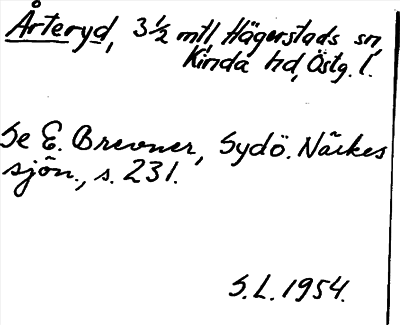 Årteryd, 3 1/2 mtl, Hägerstads sn,
Kinda hd, Östg. l.
Se E. Brevner, Sydö. Närkes
sjön., s. 231.
S.L. 1954.